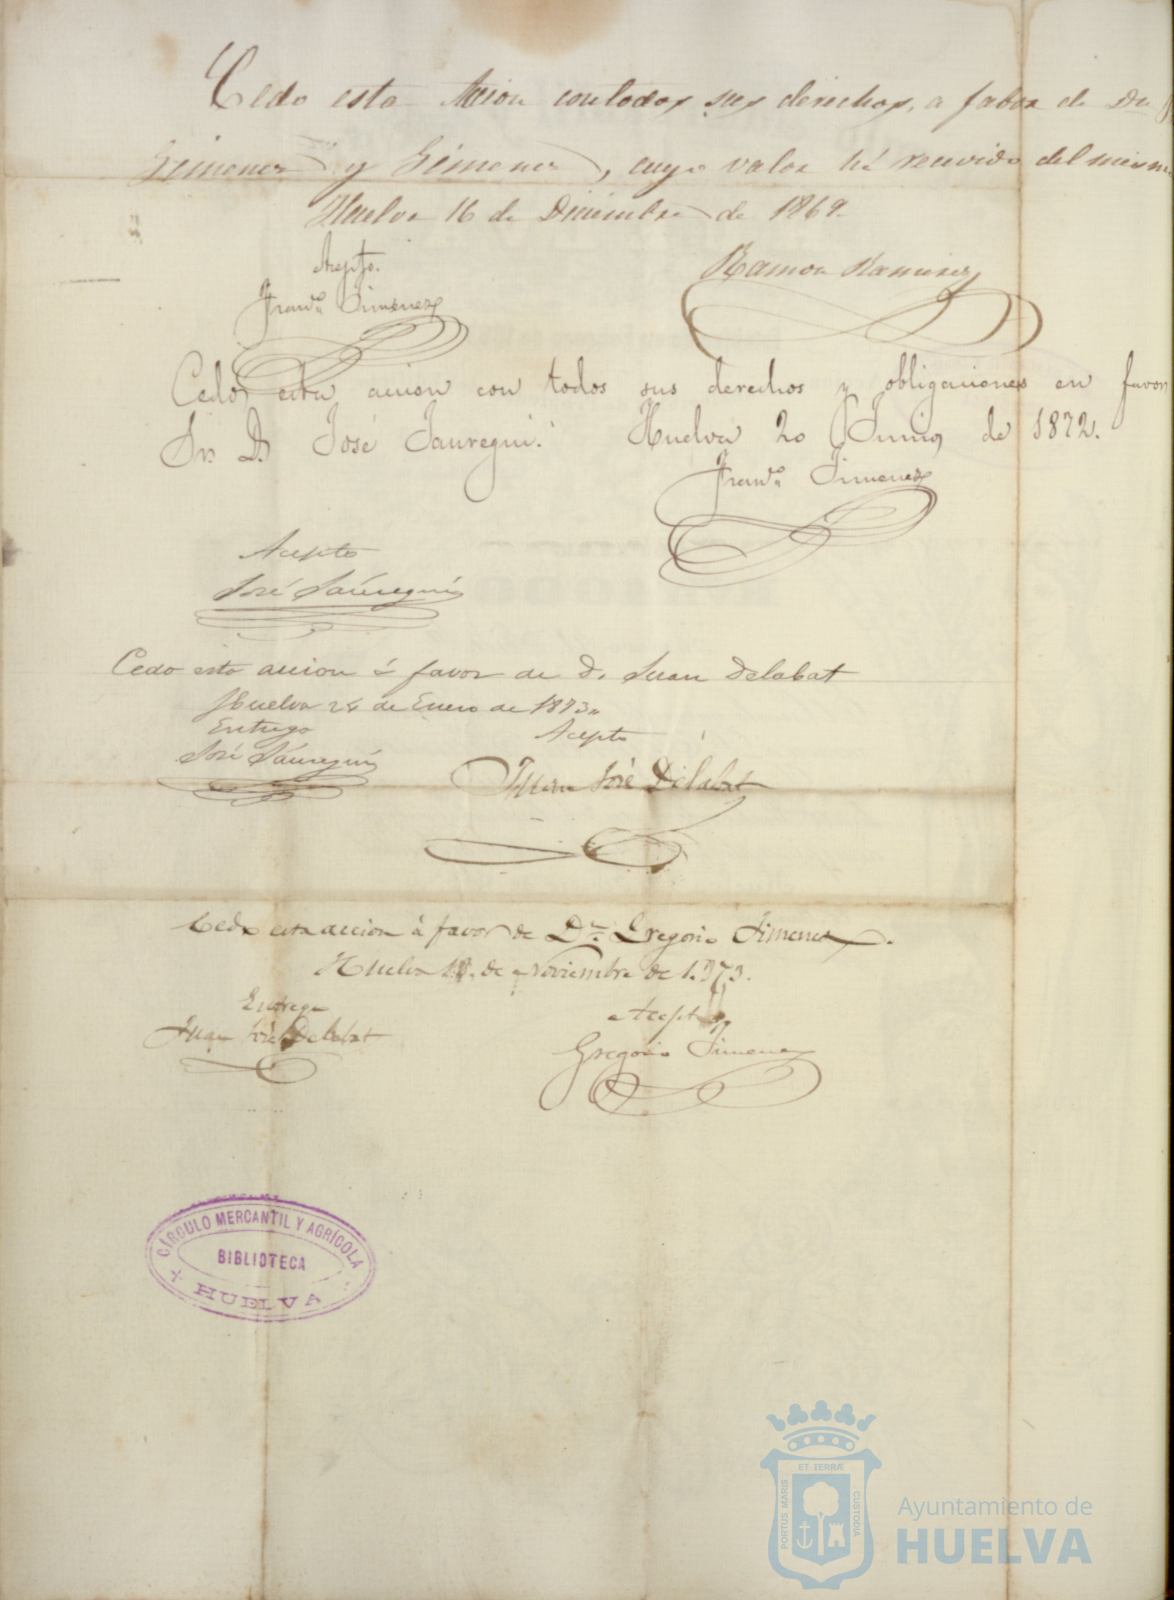 Cedo esta Acion con todos sus derechos, a fabor de Dn
Gimenez y Gimenez, cuyo valor hé recivido del mismo
Huelva 16 de Diciembre de 1869.
Acepto.
Ramon Ramirez
Franco Jimenez
Cedo esta accion con todos sus derechos y obligaciones en favor
Sr. D. José Jauregui. Huelva 20 Junio de 1872.
Franco Jimenez
Acepto
José Jáuregui
Cedo esta accion á favor de D. Juan Delabat
Huelva 24 de Enero de 1873
Entrego
Acepto
José Jáuregui
Juan José Delabat
Cedo esta accion á favor de Dn. Gregorio Jimenez.
Huelva de Noviembre de 1873.
Entrego
Acepto
Juan José Delabat
Gregorio Jimenez
CÍRCULO MERCANTIL Y AGRÍCOLA
BIBLIOTECA
HUELVA
ET TERRÆ
PORTUS MARIS
CUSTODIA
Ayuntamiento de
HUELVA